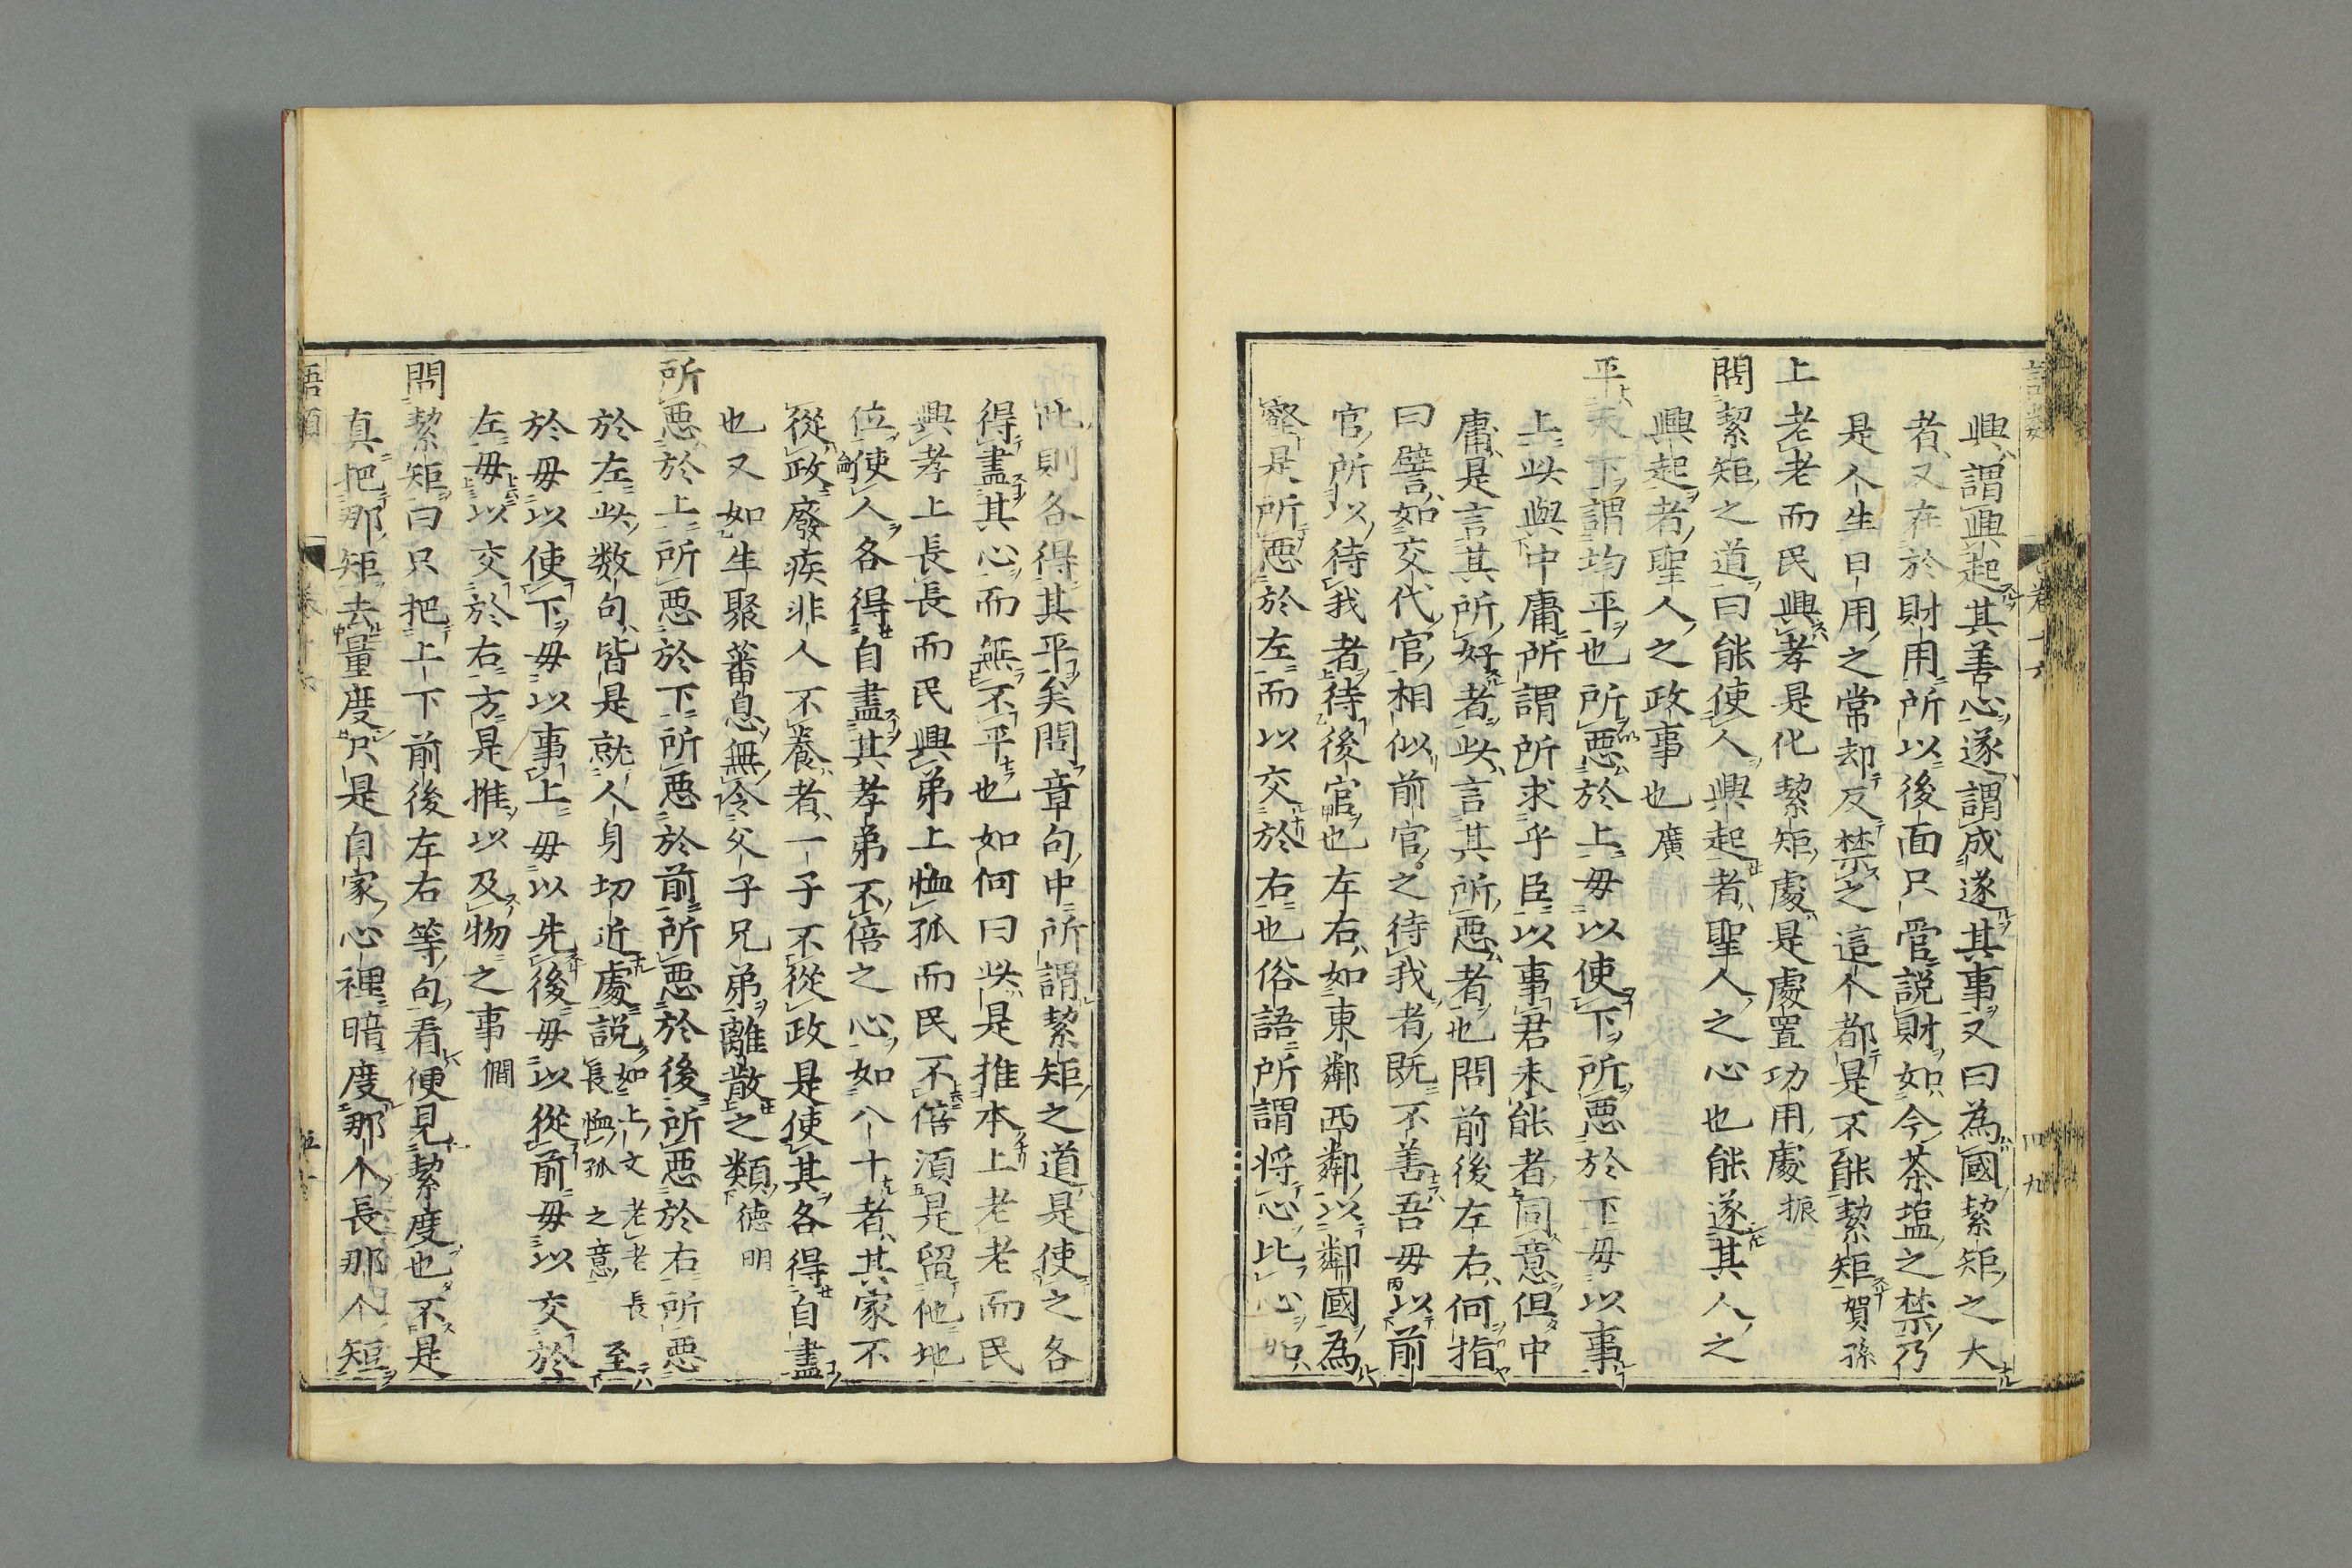 興謂興起其善心遂謂成遂其事又曰為國絜矩之大
者又在於財用所以後面只管説財如今茶塩之禁乃
是人生日用之常却反禁之這个都是不能絜矩賀孫
上老老而民興孝是化絜矩處是處置功用處振
問絜矩之道曰能使人興起者聖人之心也能遂其人之
興起者聖人之政事也廣
平天下謂均平也所惡於上毋以使下所惡於下毋以事
上此與中庸所謂所求乎臣以事君未能者同意但中
庸是言其所好者此言其所惡者也問前後左右何指
曰譬如交代官相似前官之待我者既不善吾毋以前
官所以待我者待後官也左右如東鄰西鄰以鄰國為
壑是所惡於左而以交於右也俗語所謂将心比心如
此則各得其平矣問章句中所謂絜矩之道是使之各
得盡其心而無不平也如何曰此是推本上老老而民
興孝上長長而民興弟上恤孤而民不倍湏是留他地
位使人各得自盡其孝弟不倍之心如八十者其家不
從政廢疾非人不養者一子不從政是使其各得自盡
也又如生聚蕃息無令父子兄弟離散之類德明
所惡於上所惡於下所惡於前所惡於後所惡於右所惡
於左此数句皆是就人身切近處説如上文老老長長恤孤之意至
於毋以使下毋以事上毋以先後毋以從前毋以交於
左毋以交於右方是推以及物之事僩
問絜矩曰只把上下前後左右等句看便見絜度也不是
真把那矩去量度只是自家心裡暗度那个長那个短
語類
卷十六